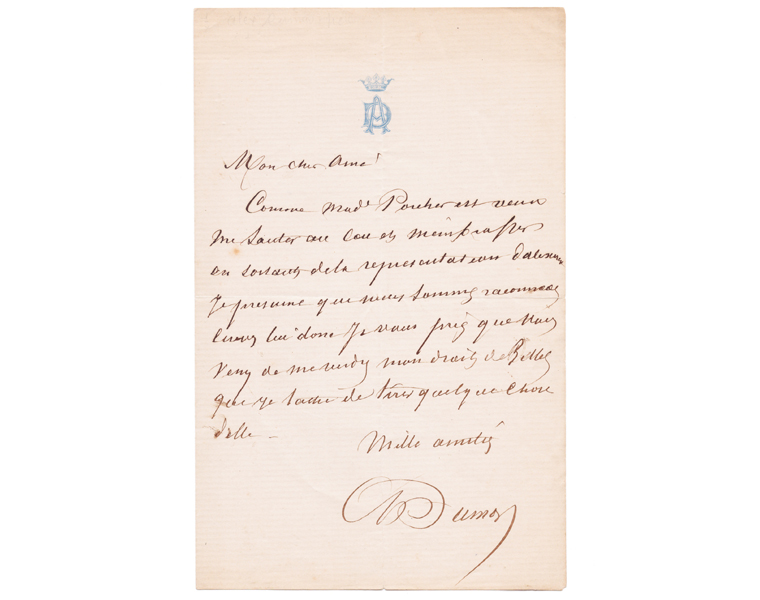 AD
Mon cher ami
Comme Made Porcher est venu
me sauter au cou et m'embrasser
en sortant de la representation
je presume que nous sommes
lui donc je vous prie que vous
venez de me rendre mon droits de Billet
que je tache de tirer quelque chose
d'elle _
Mille amitiés
A Dumas